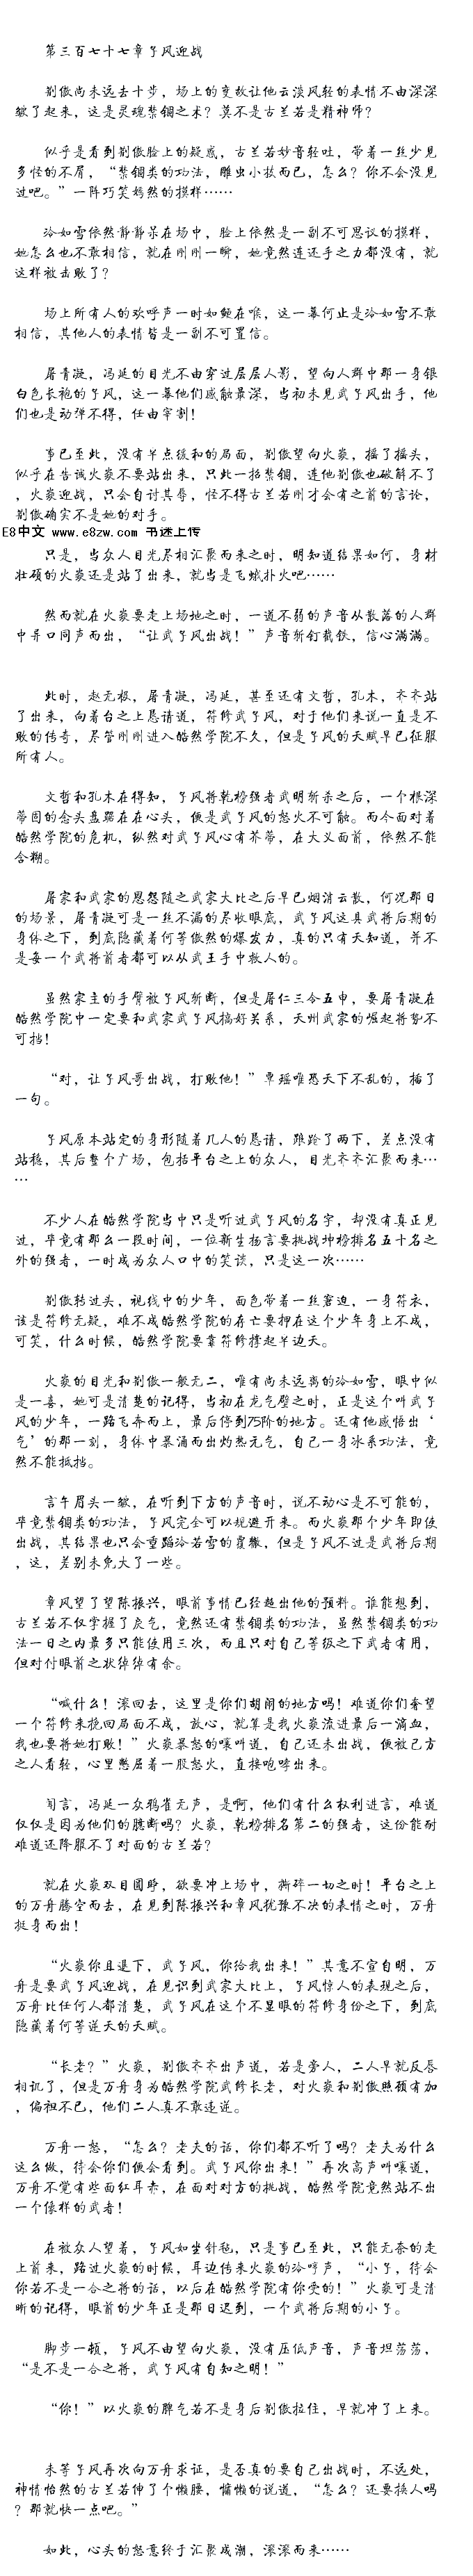 第三百七十七章子风迎战
荆傲尚未远去十步，场上的变故让他云淡风轻的表情不由深深
皱了起来，这是灵魂禁锢之术？莫不是古兰若是精神师？
似乎是看到荆傲脸上的疑惑，古兰若妙音轻吐，带着一丝少见
多怪的不屑，“禁锢类的功法，雕虫小技而已，怎么？你不会没见
过吧。”一阵巧笑嫣然的摸样……
冷如雪依然静静呆在场中，脸上依然是一副不可思议的摸样，
她怎么也不敢相信，就在刚刚一瞬，她竟然连还手之力都没有，就
这样被击败了？
场上所有人的欢呼声一时如鲠在喉，这一幕何止是冷如雪不敢
相信，其他人的表情皆是一副不可置信。
屠青凝，冯延的目光不由穿过层层人影，望向人群中那一身银
白色长袍的子风，这一幕他们感触最深，当初未见武子风出手，他
们也是动弹不得，任由宰割！
事已至此，没有半点缓和的局面，荆傲望向火焱，摇了摇头，
似乎在告诫火焱不要站出来，只此一招禁锢，连他荆傲也破解不了
，火焱迎战，只会自讨其辱，怪不得古兰若刚才会有之前的言论，
荆傲确实不是她的对手。
E8中文 www.e8zw.com 书迷上传
只是，当众人目光尽相汇聚而来之时，明知道结果如何，身材
壮硕的火焱还是站了出来，就当是飞蛾扑火吧……
然而就在火焱要走上场地之时，一道不弱的声音从散落的人群
中异口同声而出，“让武子风出战！”声音斩钉截铁，信心满满。
此时，赵无极，屠青凝，冯延，甚至还有文哲，孔木，齐齐站
了出来，向着台之上恳请道，符修武子风，对于他们来说一直是不
败的传奇，尽管刚刚进入皓然学院不久，但是子风的天赋早已征服
所有人。
文哲和孔木在得知，子风将乾榜强者武明斩杀之后，一个根深
蒂固的念头盘踞在在心头，便是武子风的怒火不可触。而今面对着
皓然学院的危机，纵然对武子风心有芥蒂，在大义面前，依然不能
含糊。
屠家和武家的恩怨随之武家大比之后早已烟消云散，何况那日
的场景，屠青凝可是一丝不漏的尽收眼底，武子风这具武将后期的
身体之下，到底隐藏着何等傲然的爆发力，真的只有天知道，并不
是每一个武将前者都可以从武王手中救人的。
虽然家主的手臂被子风斩断，但是屠仁三令五申，要屠青凝在
皓然学院中一定要和武家武子风搞好关系，天州武家的崛起将势不
可挡！
“对，让子风哥出战，打败他！”覃瑶唯恐天下不乱的，插了
一句。
子风原本站定的身形随着几人的恳请，踉跄了两下，差点没有
站稳，其后整个广场，包括平台之上的众人，目光齐齐汇聚而来…
…
不少人在皓然学院当中只是听过武子风的名字，却没有真正见
过，毕竟有那么一段时间，一位新生扬言要挑战坤榜排名五十名之
外的强者，一时成为众人口中的笑谈，只是这一次……
荆傲转过头，视线中的少年，面色带着一丝窘迫，一身符衣，
该是符修无疑，难不成皓然学院的存亡要押在这个少年身上不成，
可笑，什么时候，皓然学院要靠符修撑起半边天。
火焱的目光和荆傲一般无二，唯有尚未远离的冷如雪，眼中似
是一喜，她可是清楚的记得，当初在龙气壁之时，正是这个叫武子
风的少年，一路飞奔而上，最后停到75阶的地方。还有他感悟出‘
气’的那一刻，身体中暴涌而出灼热元气，自己一身冰系功法，竟
然不能抵挡。
言午眉头一皱，在听到下方的声音时，说不动心是不可能的，
毕竟禁锢类的功法，子风完全可以规避开来。而火焱那个少年即使
出战，其结果也只会重蹈冷若雪的覆辙，但是子风不过是武将后期
，这，差别未免大了一些。
章风望了望陈振兴，眼前事情已经超出他的预料。谁能想到，
古兰若不仅掌握了灵气，竟然还有禁锢类的功法，虽然禁锢类的功
法一日之内最多只能使用三次，而且只对自己等级之下武者有用，
但对付眼前之状绰绰有余。
“喊什么！滚回去，这里是你们胡闹的地方吗！难道你们奢望
一个符修来挽回局面不成，放心，就算是我火焱流进最后一滴血，
我也要将她打败！”火焱暴怒的嚷叫道，自己还未出战，便被己方
之人看轻，心里憋屈着一股怒火，直接咆哮出来。
闻言，冯延一众鸦雀无声，是啊，他们有什么权利进言，难道
仅仅是因为他们的臆断吗？火焱，乾榜排名第二的强者，这份能耐
难道还降服不了对面的古兰若？
就在火焱双目圆睁，欲要冲上场中，撕碎一切之时！平台之上
的万舟腾空而去，在见到陈振兴和章风犹豫不决的表情之时，万舟
挺身而出！
“火焱你且退下，武子风，你给我出来！”其意不宣自明，万
舟是要武子风迎战，在见识到武家大比上，子风惊人的表现之后，
万舟比任何人都清楚，武子风在这个不显眼的符修身份之下，到底
隐藏着何等逆天的天赋。
“长老？”火焱，荆傲齐齐出声道，若是旁人，二人早就反唇
相讥了，但是万舟身为皓然学院武修长老，对火焱和荆傲照顾有加
，偏袒不已，他们二人真不敢违逆。
万舟一怒，“怎么？老夫的话，你们都不听了吗？老夫为什么
这么做，待会你们便会看到。武子风你出来！”再次高声叫嚷道，
万舟不觉有些面红耳赤，在面对对方的挑战，皓然学院竟然站不出
一个像样的武者！
在被众人望着，子风如坐针毡，只是事已至此，只能无奈的走
上前来，路过火焱的时候，耳边传来火焱的冷哼声，“小子，待会
你若不是一合之将的话，以后在皓然学院有你受的！”火焱可是清
晰的记得，眼前的少年正是那日迟到，一个武将后期的小子。
脚步一顿，子风不由望向火焱，没有压低声音，声音坦荡荡，
“是不是一合之将，武子风有自知之明！”
“你！”以火焱的脾气若不是身后荆傲拉住，早就冲了上来。
未等子风再次向万舟求证，是否真的要自己出战时，不远处，
神情怡然的古兰若伸了个懒腰，慵懒的说道，“怎么？还要换人吗
？那就快一点吧。”
如此，心头的怒意终于汇聚成潮，滚滚而来……